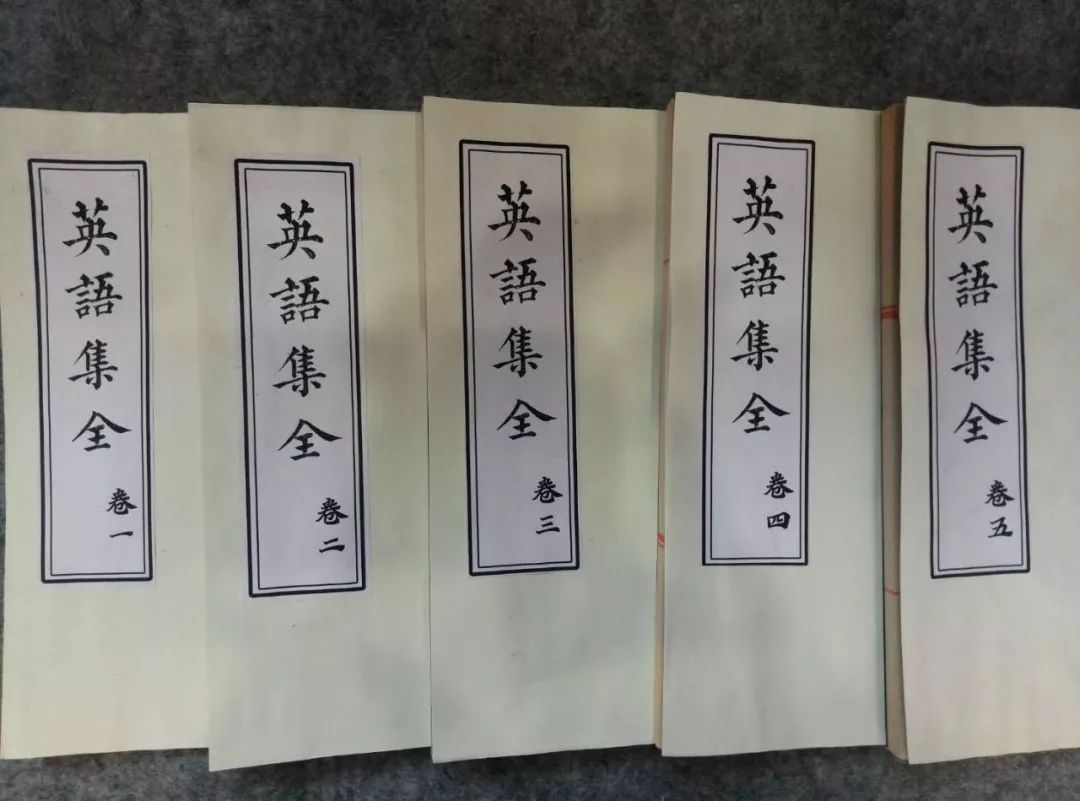 英語集全
卷一
英語集全
卷二
英語集全
卷三
英語集全
卷四
英語集全
卷五